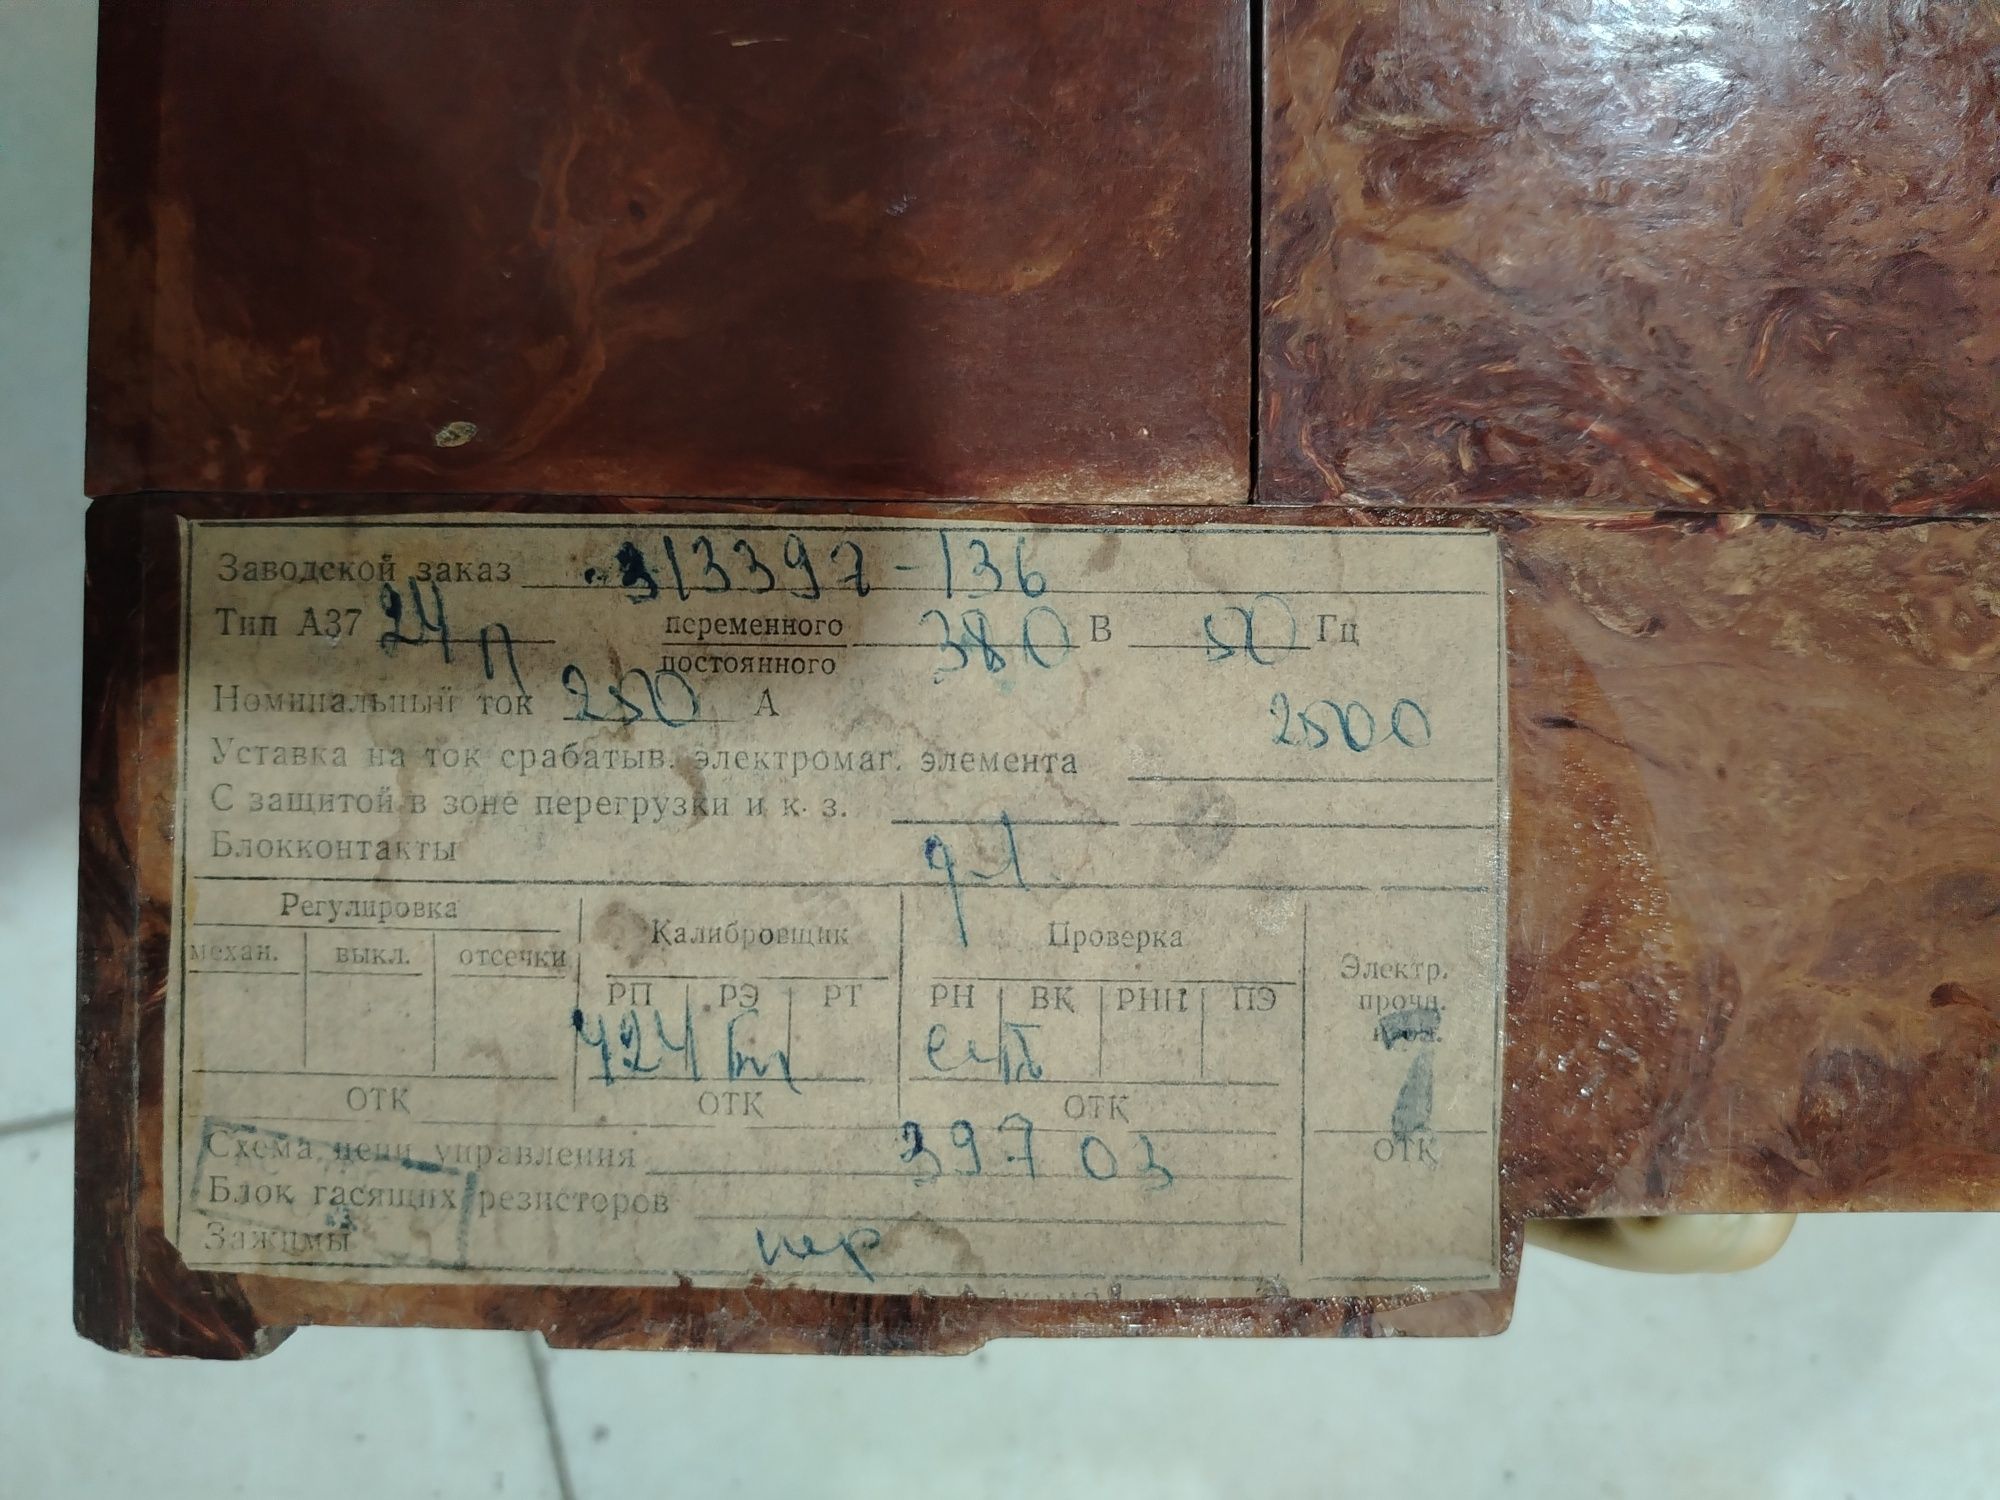 Заводской заказ 313397-136
Тип А37 24 П переменного 380 В 50 Гц
постоянного
Номинальный ток 250 А
2500
Уставка на ток срабатыв. электромаг. элемента
С защитой в зоне перегрузки и к. з.
Блокконтакты
Регулировка Калибровщик Проверка Электр. прочн.
механ. выкл. отсечки РП РЭ РТ РН ВК РНП ПЭ
424
ОТК ОТК ОТК ОТК
Схема цепи управления 397 03
Блок гасящих резисторов
Зажимы пер